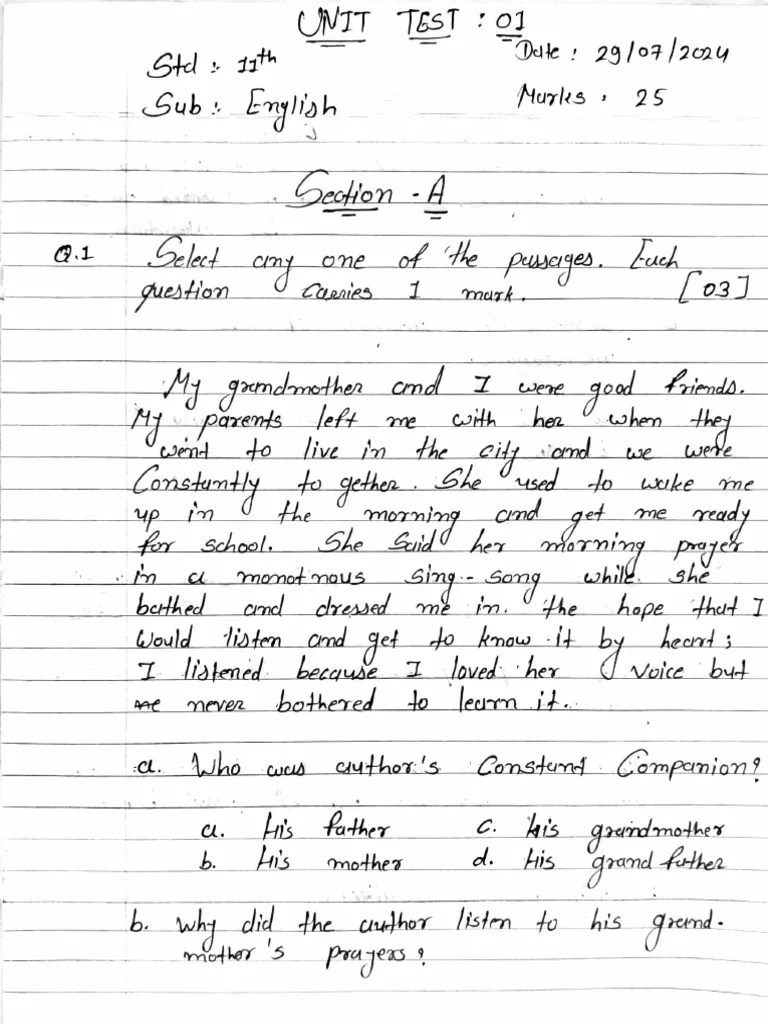 UNIT TEST : 01
Std : 11th
Date : 29/07/2024
Sub : English
Marks : 25
Section - A
Q.1 Select any one of the passages. Each
question carries 1 mark. [03]
My grandmother and I were good friends.
My parents left me with her when they
went to live in the city and we were
Constantly to gether. She used to wake me
up in the morning and get me ready
for school. She Said her morning prayer
in a monotnous sing-song while she
bathed and dressed me in the hope that I
Would listen and get to know it by heart;
I listened because I loved her voice but
never bothered to learn it.
a. Who was author's Constant Companion?
a. His father c. His grandmother
b. His mother d. His grand father
b. Why did the author listen to his grand-
mother's prayers?